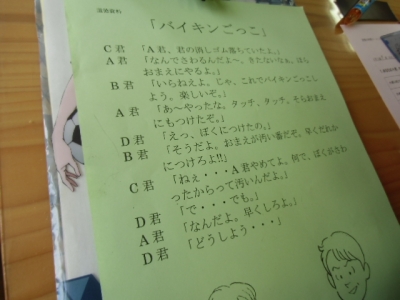 道徳資料
「バイキンごっこ」
C君 「A君、君の消しゴム落ちていたよ。」
A君 「なんでさわるんだよ〜、きたないなぁ、ほら、
おまえにやるよ。」
B君 「いらねえよ。じゃ、これでバイキンごっこし
よう。楽しいぞ。」
A君 「あ〜やったな。タッチ、タッチ。そらおまえ
にもつけたぞ。」
D君 「えっ、ぼくにつけたの。」
B君 「そうだよ。おまえが汚い番だぞ。早くだれか
につけろよ!!」
C君 「ねぇ・・・A君やめてよ。何で、ぼくがさわ
ったからって汚いんだよ。」
D君 「で・・・でも。」
A君 「なんだよ。早くしろよ。」
D君 「どうしよう・・・」